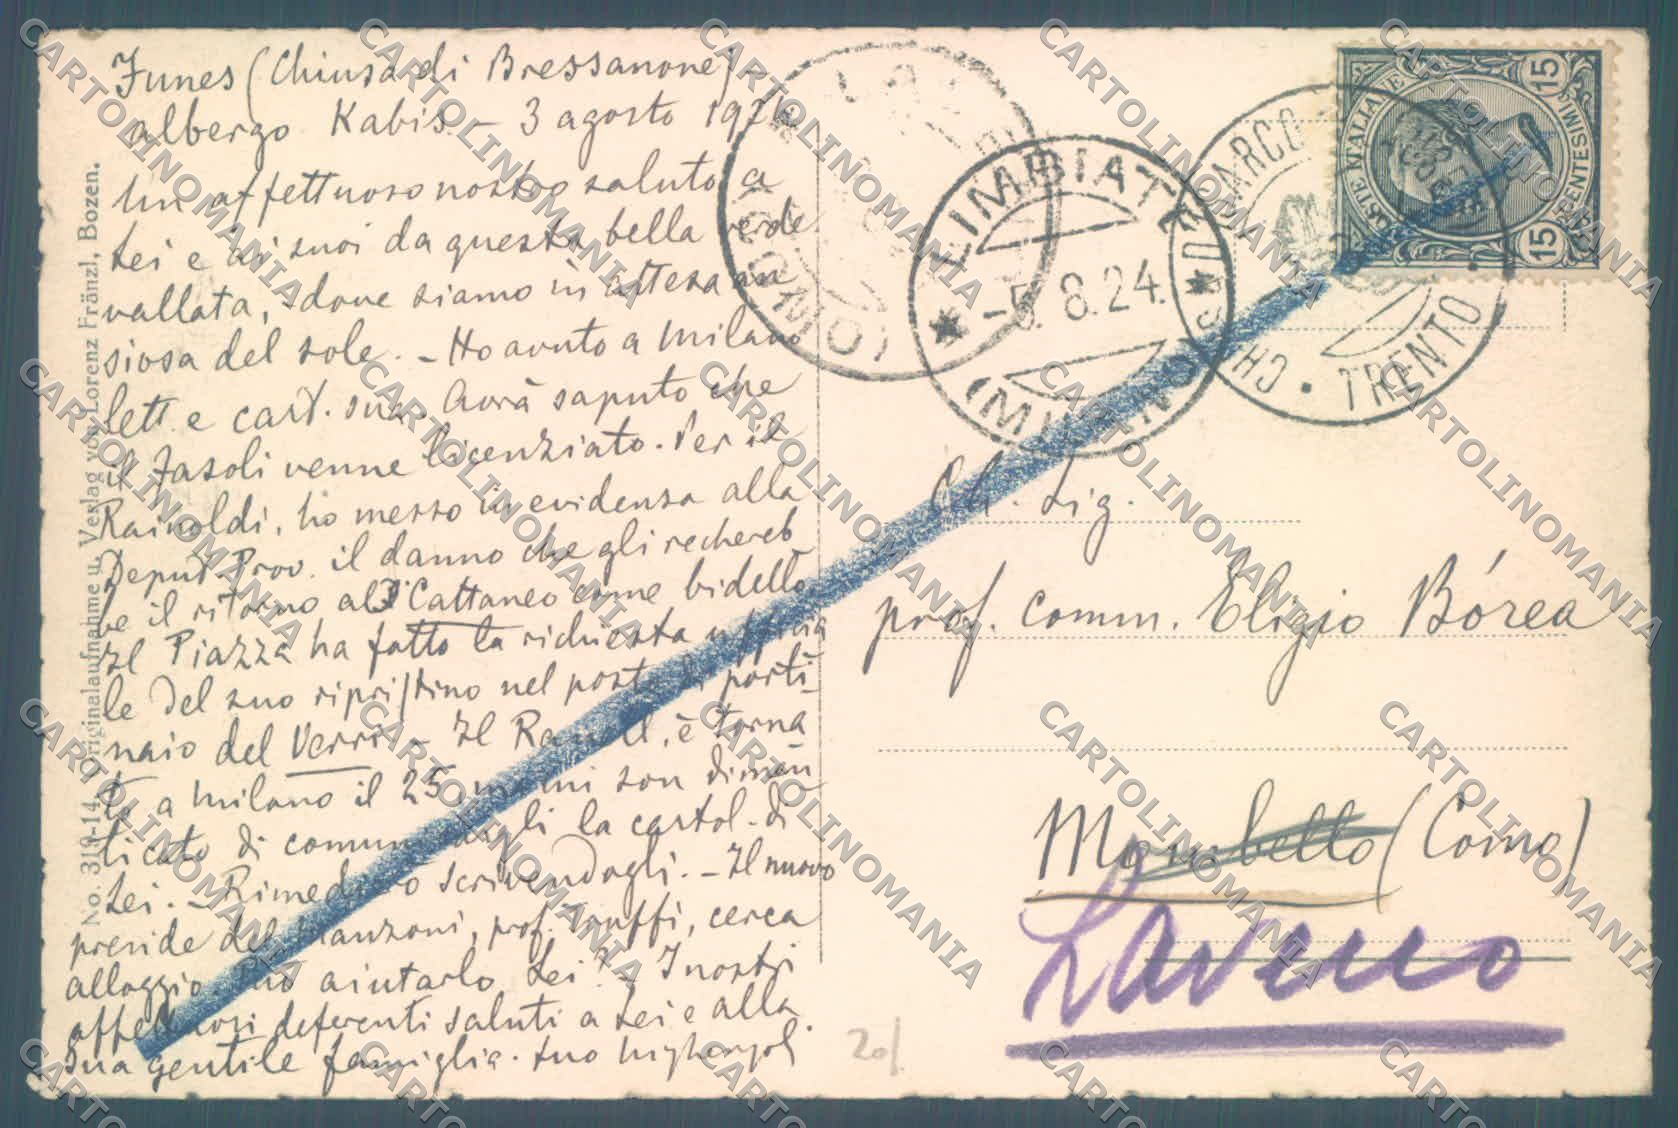 Funes (Chiusa di Bressanone)
albergo Kabis - 3 agosto 1924
Un affettuoso nostro saluto a
Lei e ai suoi da questa bella verde
vallata, dove siamo in attesa an
siosa del sole. - Ho avuto a Milano
lett. e cart. sua. Avrà saputo che
il Fasoli venne licenziato. Per il
Rainoldi, ho messo in evidenza alla
Deput. Prov. il danno che gli rechereb
be il ritorno al Cattaneo come bidello
Il Piazza ha fatto la richiesta
le del suo ripristino nel posto di porti-
naio del Verri - Il è torna
to a Milano il 25, ma mi son dimen
ticato di comunicargli la cartol. di
Lei. - Rimedierò scrivendogli. - Il nuovo
preside del Manzoni, prof. cerca
alloggio. Può aiutarlo Lei? - I nostri
affettuosi deferenti saluti a Lei e alla
Sua gentile famiglia. Suo
No. 319-14. Originalaufnahme u. Verlag von Lorenz Fränzl, Bozen.
(COMO)
LIMBIATE
-5. 8.24.
(MILANO)
S. MARCO
CHIUSA
TRENTO
POSTE ITALIANE
15 CENTESIMI 15
Ch. Sig.
prof. comm. Eligio Bórea
Mombello (Como)
Laveno
20/
CARTOLINOMANIA